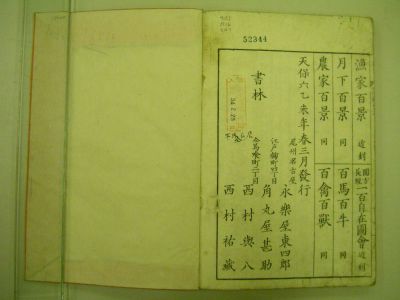 52344
漁家百景 近刻
月下百景 同
農家百景 同
一百自在圖會 近刻
百馬百牛 同
百禽百獸 同
天保六乙未年春三月發行
書林
尾州名古屋
永樂屋東四郎
江戸麹町四丁目
角丸屋甚助
今馬喰町二丁目
西村與八
西村祐藏